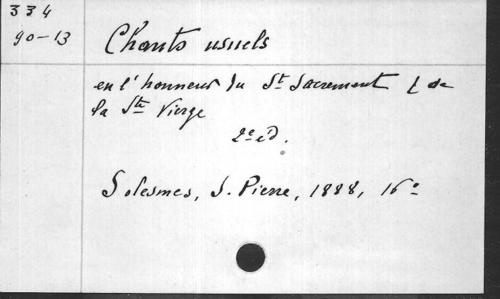 334
90-13
Chants usuels
en l'honneur du St Sacrement & de
la Ste Vierge
2e éd.
Solesmes, S. Pierre, 1888, 16°